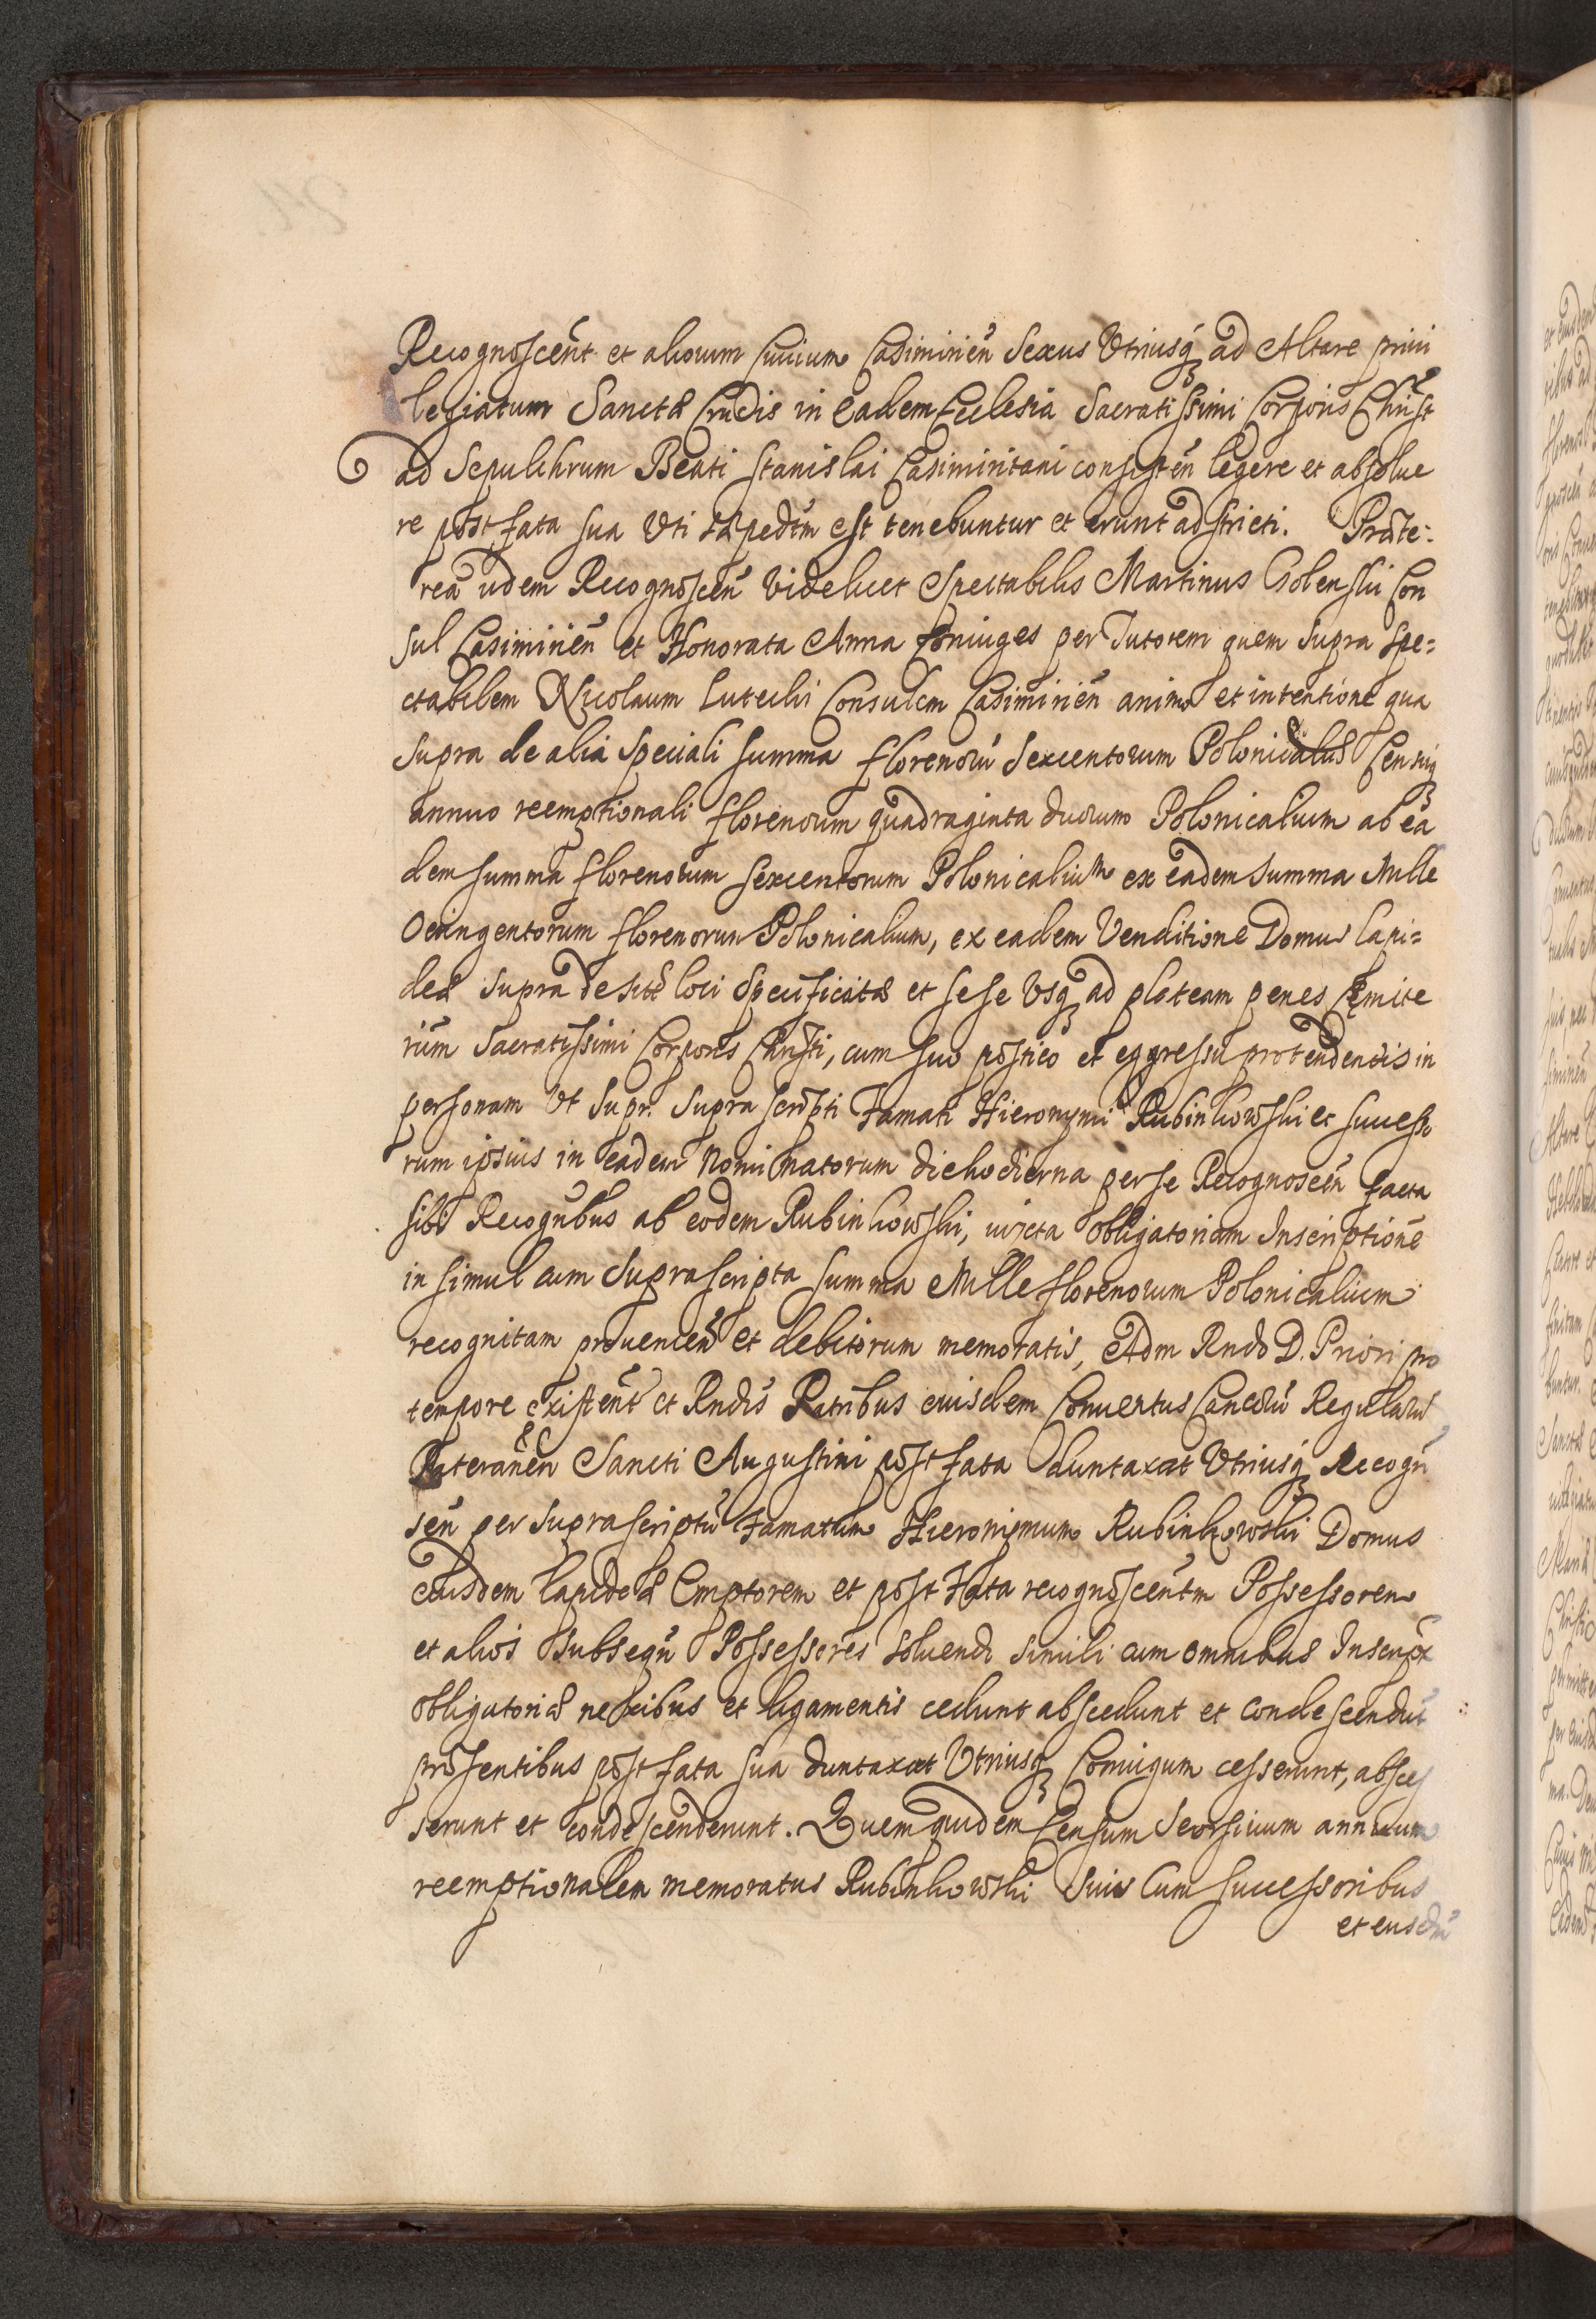 Recognoscent et aliorum Ciuium Casimirien̄ Sexus Vtriusq́ ad Altare priui
legiatum Sanctæ Crucis in Eadem Ecclesia Sacratissimi Corporis Christ
ad Sepulchrum Beati Stanislai Casimiritani consisten̄ legere et absolue
re post fata sua Vti expedtm̄ est tenebuntur et erunt adstricti. Præte:
rea ijdem Recognoscen̄ videlicet Spectabilis Martinus Golenski Con
sul Casimirien̄ et Honorata Anna Coniuges per Tutorem quem supra Spe=
ctabilem Nicolaum Lutecki Consulem Casimirien̄ animo et intentione qua
supra de alia speciali summa florenorū sexcentorum Polonicalis Censuq́
annuo reemptionali florenorum quadraginta duorum Polonicalium ab ea
dem summa florenorum sexcentorum Polonicalium ex eadem summa Mille
Octingentorum florenorum Polonicalium, ex eadem Venditione Domus lapi=
deæ supra de sitû loci specificatæ et sese Vsq́ ad plateam penes Cæmite
rium Sacratissimi Corporis Christi, cum suo postico et eggressu protendentis in
personam vt supr. supra scripti Famati Hieronymi Rubinkowski et successo
rum ipsius in eadem Nominatorum die hodierna per se Recognoscen̄ facta
sibi Recognbus ab eodem Rubinkowski, iuxta obligatoriam Inscriptionē
in simul cum suprascripta summa Mille florenorum Polonicalium
recognitam prouenien̄ et debitorum memoratis, Adm Rndo D. Priori pro
tempore existent et Rndis Patribus eiusdem Conuentus Cancorū Regularū
Lateranen̄ Sancti Augustini post fata duntaxat Vtriusq́ Recogn̄
sen̄ per suprascriptū Famatum Hieronimum Rubinkowski Domus
eiusdem lapideæ Emptorem et post Fata recognoscentm Possessorem
et alios subseqū Possessores soluendi simili cum omnibus Inscript
obligatoriæ nexibus et ligamentis cedunt abscedunt et condescendūt
præsentibus post fata sua duntaxat Vtriusq́ Coniugum cesserunt, absces
serunt et condescenderunt. Quem quidem Censum seorsiuum annuum
reemptionalem memoratus Rubinkowski suis cum successoribus
et eiusdm̄